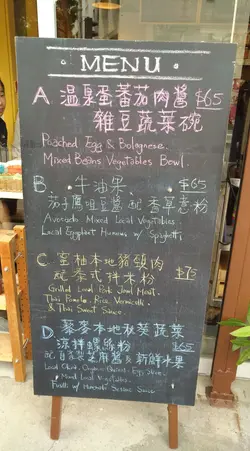 MENU
A. 溫泉蛋蕃茄肉醬 $65
雜豆蔬菜碗
Poached Egg & Bolognese
Mixed Beans Vegetables Bowl.
B. 牛油果、 $65
茄子鷹咀豆醬配香草意粉
Avocado Mixed Local Vegetables
Local Eggplant Humus w/ Spaghetti
C. 室柚本地豬頸肉 $75
配泰式拌米粉
Grilled Local Pork Jowl Meat.
Thai Pomelo, Rice Vermicelli
& Thai Sweet Sauce.
D. 藜麥本地秋葵蔬菜
涼拌螺絲粉 $65
配自家製芝麻醬&新鮮水果
Local Okra, Quinoa,
Mixed Local Vegetables
Fusilli w/ Homemade Sesame Sauce